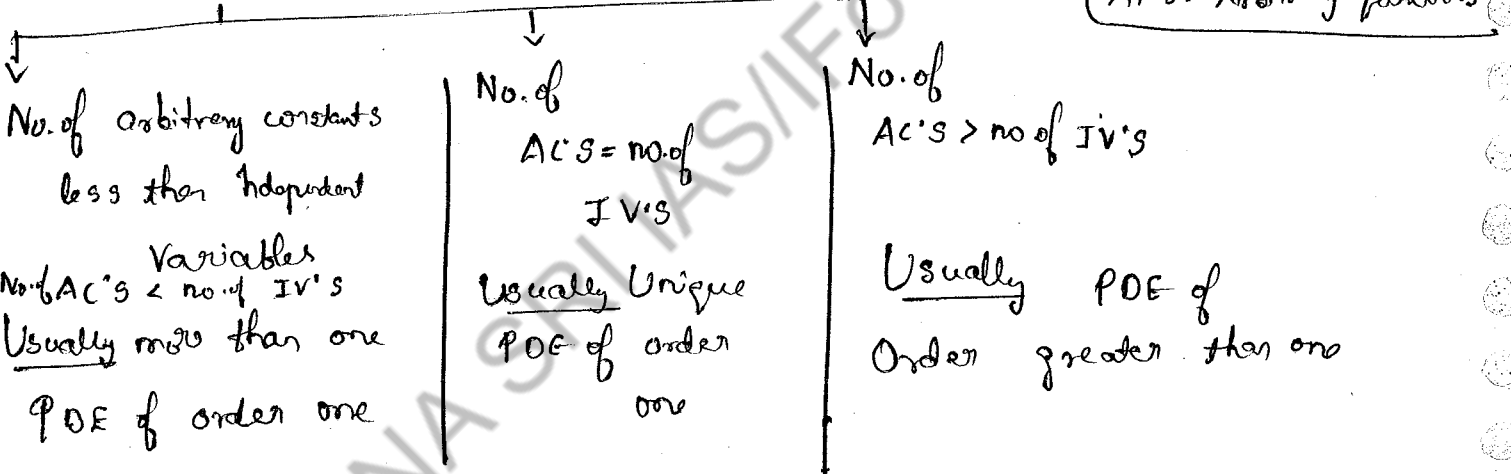 No. of arbitrary constants
less than Independent
Variables
No. of AC's < no. of IV's
Usually more than one
PDE of order one
No. of
AC'S = no. of
IV'S
Usually Unique
PDE of order
one
No. of
AC'S > no of IV'S
Usually PDE of
Order greater than one
NA SRI IAS/IFO